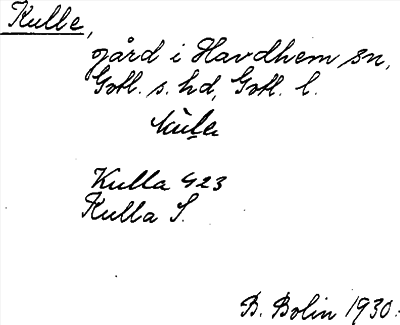 Kulle,
gård i Havdhem sn,
Gotl. s. hd, Gotl. l.
Kulla 423
Kulla S.
B. Bolin 1930.